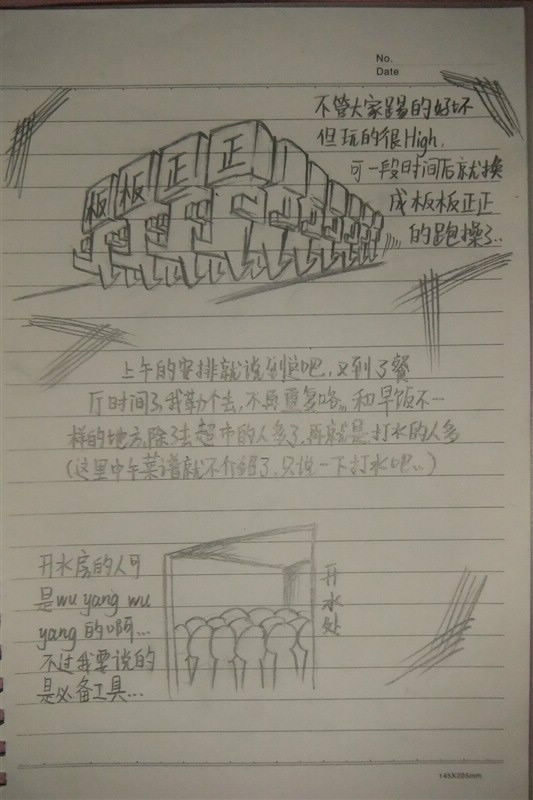 No.
Date
不管大家踢的好坏
但玩的很High,
可一段时间后就换
成板板正正
的跑操了..
板板正正
上午的安排就说到这吧,又到了餐
厅时间了,我勒个去,不再重复咯。和早饭不一
样的地方,除了去超市的人多了,再就是打水的人多
(这里中午菜谱就不介绍了,只说一下打水吧...)
开水房的人可
是wu yang wu
yang 的啊...
不过我要说的
是必备工具...
开水处
145X205mm